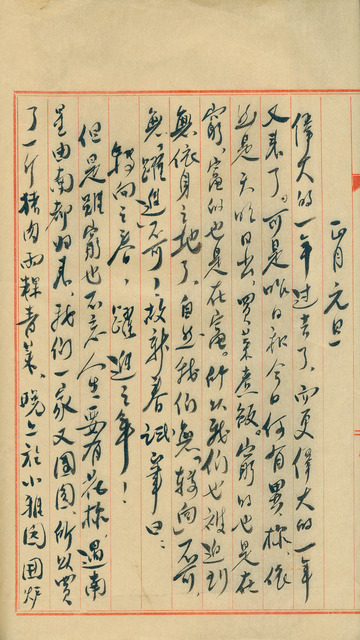 正月元旦
偉大的一年過去了，而更偉大的一年
又来了。可是昨日和今日何有異樣，依
然是天吹日出，買菜煮飯。窮的也是在
窮，富的也是在富。所以我們也被迫到
無依身之地了。自然我們無「轉向」不可，
無「躍進」不可！故新春試筆曰：
轉向之春，躍進之年！
但是雖窮也不忘人生要有花樣，過南
星由南部归来，我們一家又團圓，所以買
了一斤猪肉兩粿青菜。晚上於小雅园圍炉